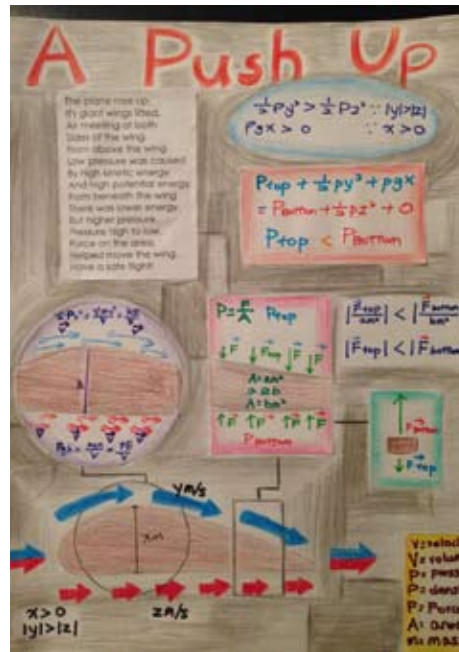 A Push Up
The plane rose up.
It's giant wings lifted,
Air meeting at both
Sides of the wing.
From above the wing
Low pressure was caused
By high kinetic energy
And high potential energy.
From beneath the wing
There was lower energy
But higher pressure.
Pressure high to low,
Force on the area,
Helped move the wing.
Have a safe flight!
½ρy² > ½ρz² ∵ |y|>|z|
ρgx > 0 ∵ x>0
Ptop + ½ρy² + ρgx
= Pbottom + ½ρz² + 0
Ptop < Pbottom
P=F/A Ptop
↓F ↓Ftop ↓F ↓F
A=am²
a≥b
A=bm²
↑F ↑F ↑F ↑F
Pbottom
|Ftop/am²| < |Fbottom/bm²|
|Ftop| < |Fbottom|
Fbottom
Ftop
h
y m/s
x m
z m/s
x>0
|y|>|z|
V=
P=
A=
m=